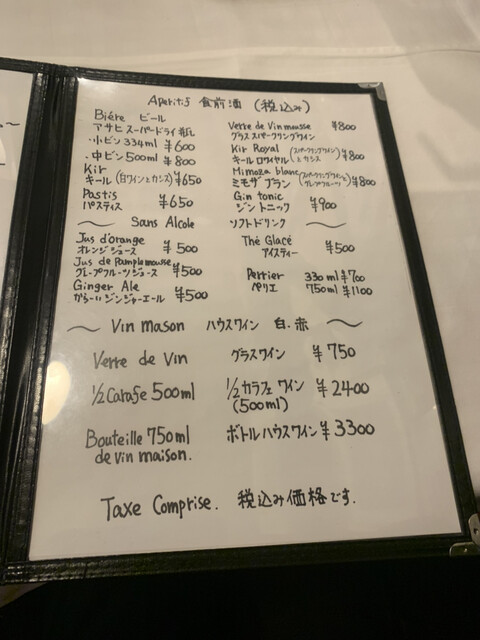 Aperitif 食前酒 (税込み)
Bière ビール
アサヒ スーパードライ 瓶
・小ビン 334ml ¥600
・中ビン 500ml ¥800
Kir
キール (白ワインとカシス) ¥650
Pastis
パスティス ¥650
Verre de Vin mousse
グラス スパークリングワイン ¥800
Kir Royal (スパークリングワインとカシス)
キールロワイヤル ¥800
Mimoza blanc (スパークリングワインとグレープフルーツ)
ミモザ ブラン ¥800
Gin tonic
ジントニック ¥900
〜 Sans Alcole ソフトドリンク 〜
Jus d'orange
オレンジジュース ¥500
Jus de Pamplemousse
グレープフルーツジュース ¥500
Ginger Ale
からーいジンジャーエール ¥500
Thé Glacé
アイスティー ¥500
Perrier 330ml ¥700
ペリエ 750ml ¥1100
〜 Vin mason ハウスワイン 白.赤 〜
Verre de Vin グラスワイン ¥750
1/2 Carafe 500ml 1/2 カラフェ ワイン ¥2400
(500ml)
Bouteille 750ml ボトルハウスワイン ¥3300
de vin maison.
Taxe Comprise. 税込み価格です.